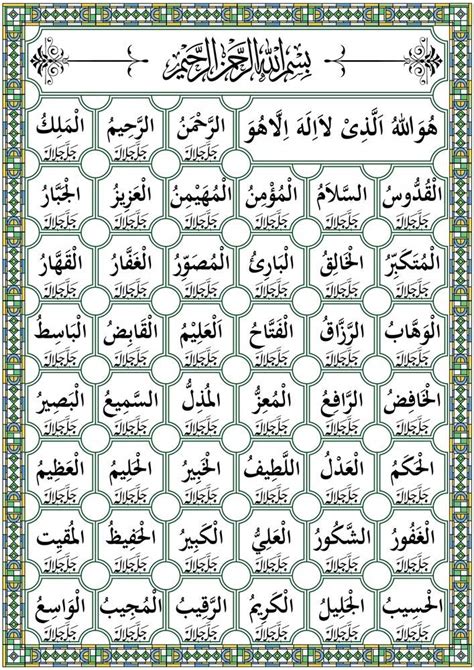 بِسْمِ اللهِ الرَّحْمَنِ الرَّحِيمِ
هُوَاللهُ اَلَّذِىْ لاَاِلَهَ اِلاَّهُوَ الرَّحْمَنُ الرَّحِيمُ الْمَلِكُ
جَلَّ جَلَالُهُ جَلَّ جَلَالُهُ جَلَّ جَلَالُهُ
الْقُدُّوسُ السَّلاَمُ الْمُؤْمِنُ الْمُهَيْمِنُ الْعَزِيزُ الْجَبَّارُ
جَلَّ جَلَالُهُ جَلَّ جَلَالُهُ جَلَّ جَلَالُهُ جَلَّ جَلَالُهُ جَلَّ جَلَالُهُ جَلَّ جَلَالُهُ
الْمُتَكَبِّرُ الْخَالِقُ الْبَارِئُ الْمُصَوِّرُ الْغَفَّارُ الْقَهَّارُ
جَلَّ جَلَالُهُ جَلَّ جَلَالُهُ جَلَّ جَلَالُهُ جَلَّ جَلَالُهُ جَلَّ جَلَالُهُ جَلَّ جَلَالُهُ
الْوَهَّابُ الرَّزَّاقُ الْفَتَّاحُ اَلْعَلِيْمُ الْقَابِضُ الْبَاسِطُ
جَلَّ جَلَالُهُ جَلَّ جَلَالُهُ جَلَّ جَلَالُهُ جَلَّ جَلَالُهُ جَلَّ جَلَالُهُ جَلَّ جَلَالُهُ
الْخَافِضُ الرَّافِعُ الْمُعِزُّ الْمُذِلُّ السَّمِيعُ الْبَصِيرُ
جَلَّ جَلَالُهُ جَلَّ جَلَالُهُ جَلَّ جَلَالُهُ جَلَّ جَلَالُهُ جَلَّ جَلَالُهُ جَلَّ جَلَالُهُ
الْحَكَمُ الْعَدْلُ اللَّطِيفُ الْخَبِيرُ الْحَلِيمُ الْعَظِيمُ
جَلَّ جَلَالُهُ جَلَّ جَلَالُهُ جَلَّ جَلَالُهُ جَلَّ جَلَالُهُ جَلَّ جَلَالُهُ جَلَّ جَلَالُهُ
الْغَفُورُ الشَّكُورُ الْعَلِيُّ الْكَبِيرُ الْحَفِيظُ الْمُقِيت
جَلَّ جَلَالُهُ جَلَّ جَلَالُهُ جَلَّ جَلَالُهُ جَلَّ جَلَالُهُ جَلَّ جَلَالُهُ جَلَّ جَلَالُهُ
الْحَسِيبُ الْجَلِيلُ الْكَرِيمُ الرَّقِيبُ الْمُجِيبُ الْوَاسِعُ
جَلَّ جَلَالُهُ جَلَّ جَلَالُهُ جَلَّ جَلَالُهُ جَلَّ جَلَالُهُ جَلَّ جَلَالُهُ جَلَّ جَلَالُهُ